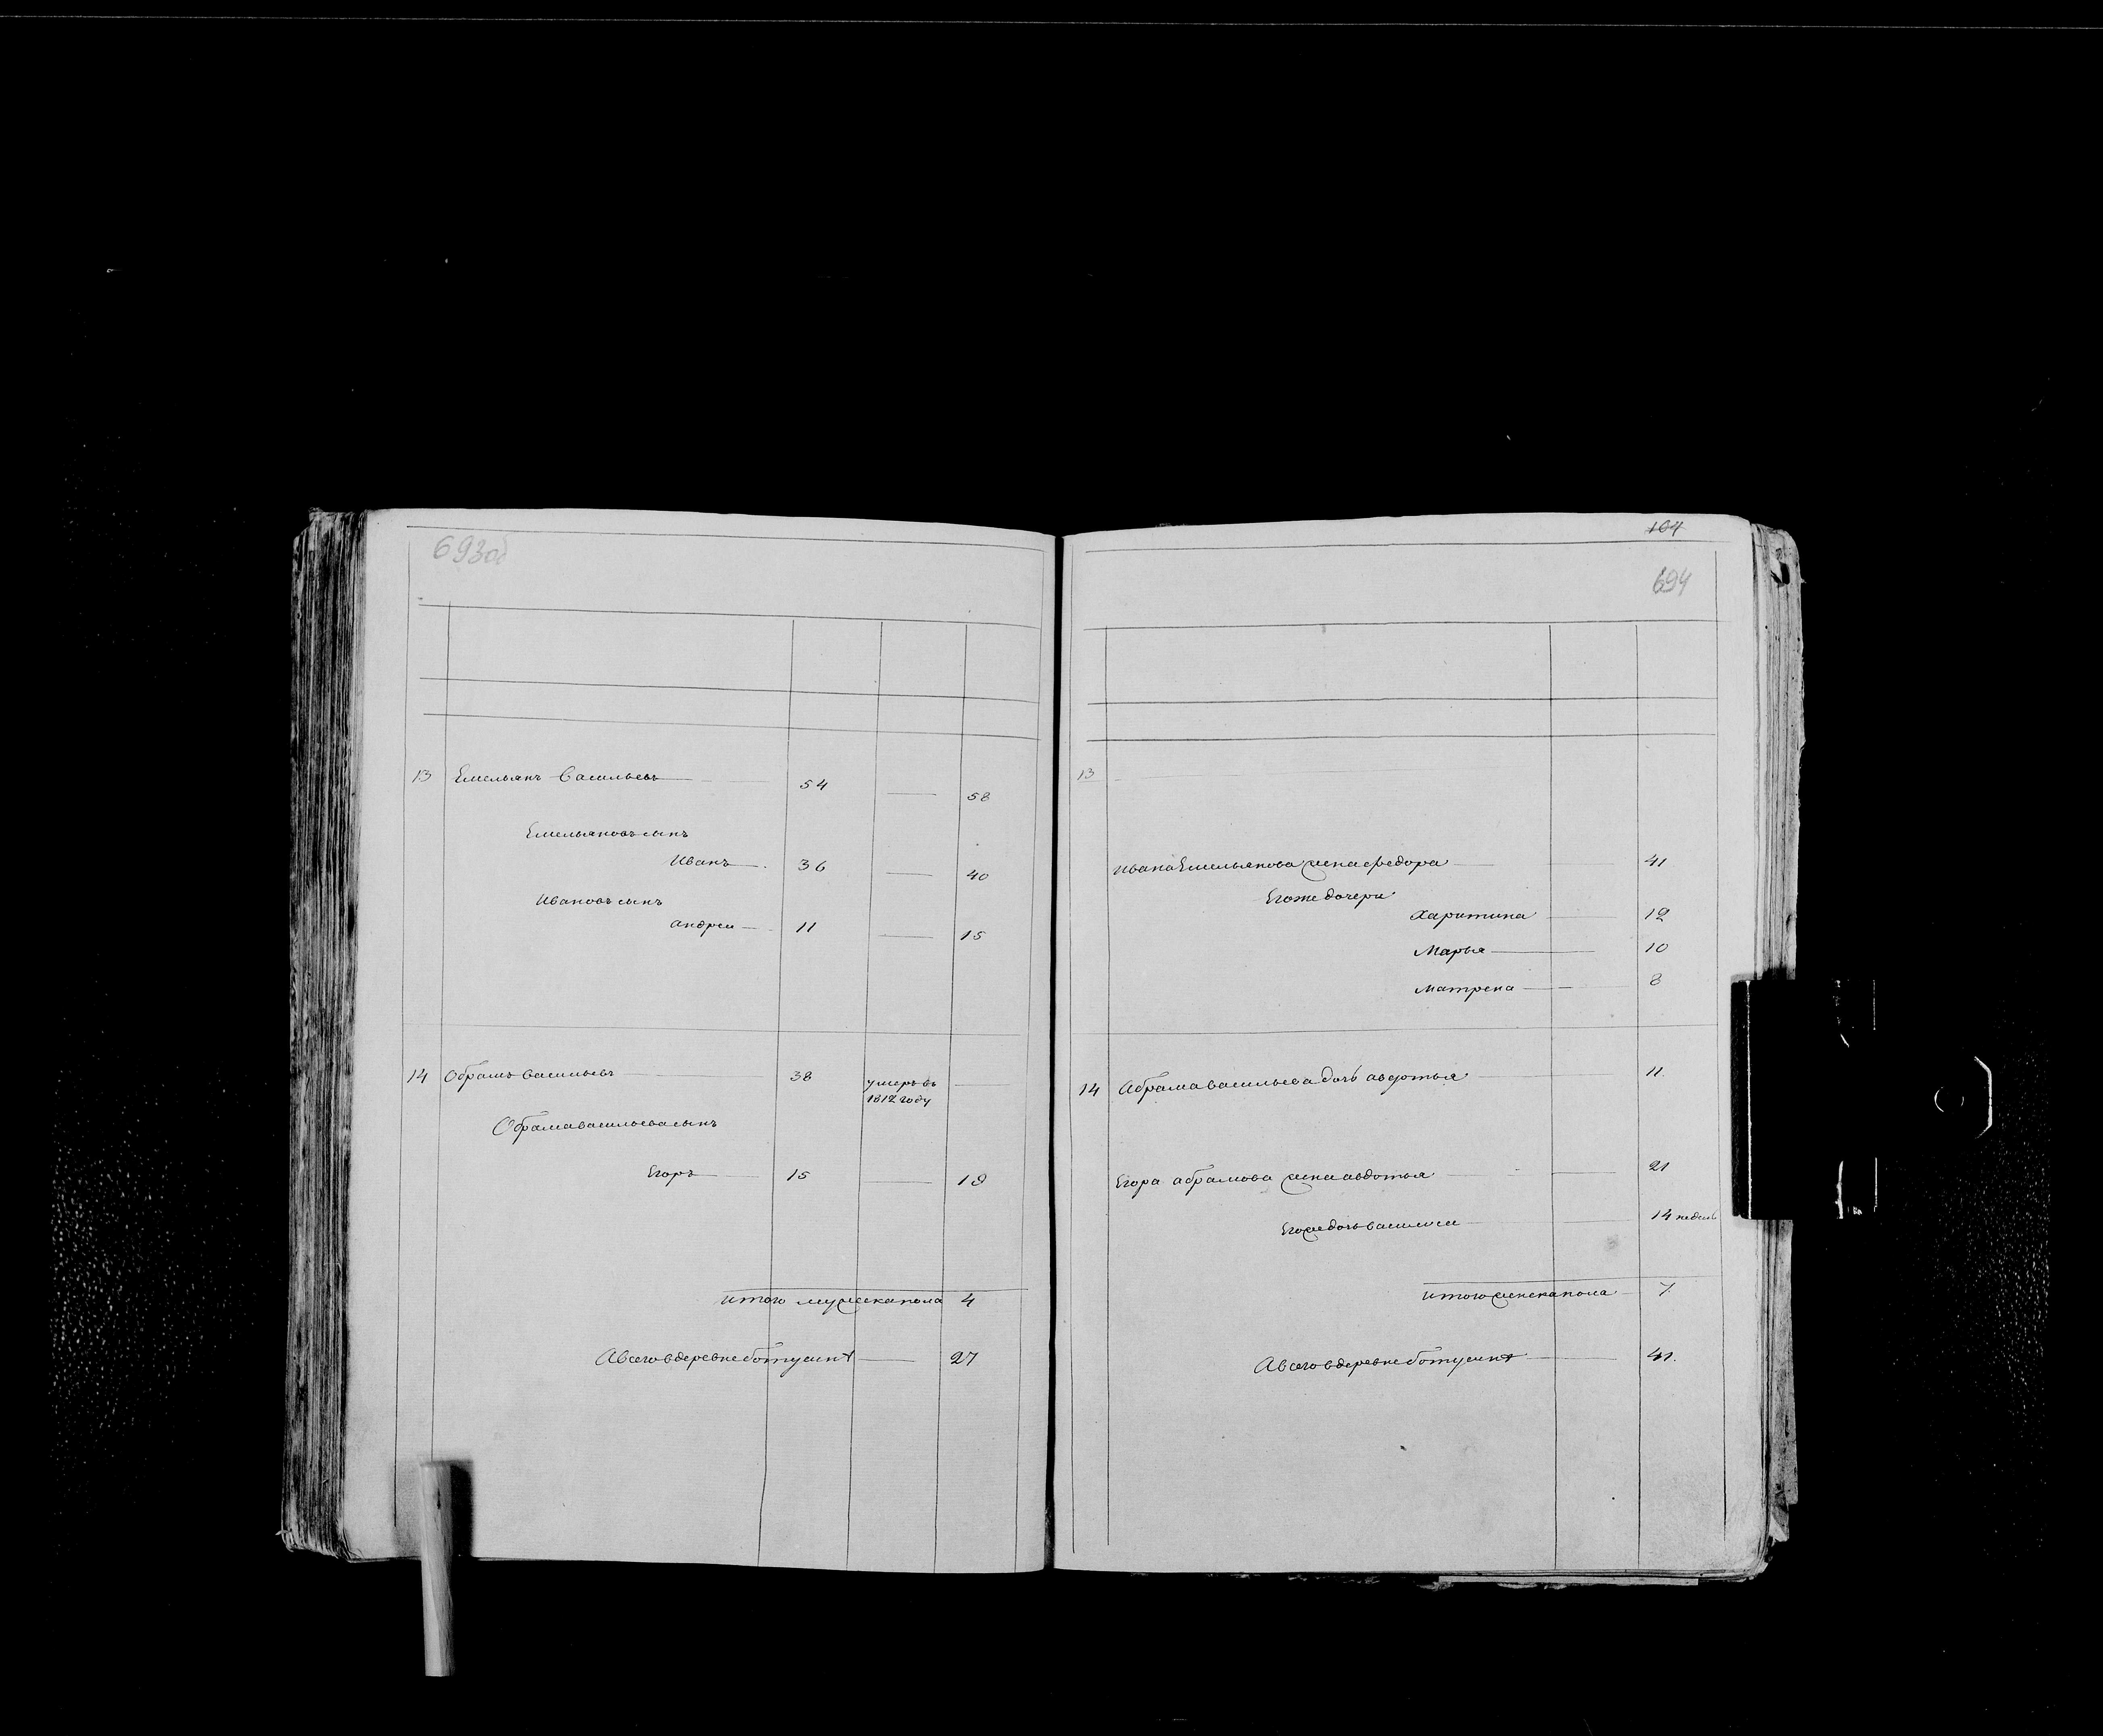 693об
13 Емельянъ Васильевъ 54 — 58
Емельяновъ сынъ
Иванъ 36 — 40
Ивановъ сынъ
андреи 11 — 15
14 Обрамъ васильевъ 38 умеръ въ —
1812 году
Обрама васильева сынъ
Егоръ 15 — 19
итого мужеска пола 4
А всего в деревне ботусинѣ — 27
104
694
13
ивана Емельянова жена федора — 41
Его же дочери
харитина — 12
Марья — 10
матрена — 8
14 Абрама васильева дочь авдотья — 11.
Егора абрамова жена авдотья — 21
Его же дочь василиса 14 недель
итого женска пола — 7.
А всего в деревне ботусинѣ — 41.